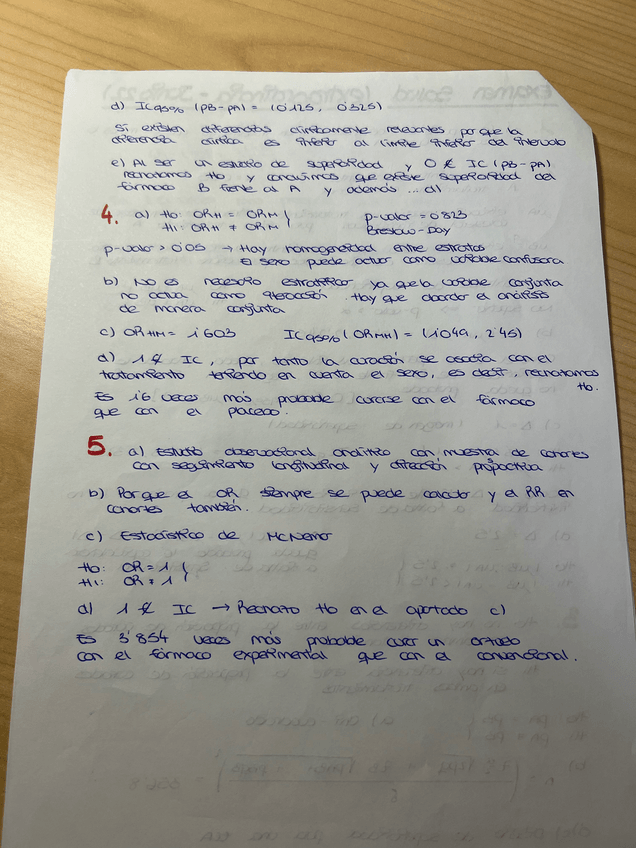 d) IC95% (PB-PA) = (0'125, 0'325)
Sí existen diferencias clínicamente relevantes porque la
diferencia clínica es inferior al límite inferior del intervalo
e) Al ser un estudio de superioridad y 0 ∉ IC (PB-PA)
rechazamos Ho y concluimos que existe superioridad del
fármaco B frente al A y además ... d)
4. a) Ho: ORH = ORM } p-valor = 0'823
H1: ORH ≠ ORM Breslow-Day
p-valor > 0'05 → Hay homogeneidad entre estratos
El sexo puede actuar como variable confusora
b) No es necesario estratificar ya que la variable conjunta
no actúa como iteración. Hay que abordar el análisis
de manera conjunta
c) ORMH = 1'603 IC95% (ORMH) = (1'049, 2'45)
d) 1 ∉ IC, por tanto la curación se asocia con el
tratamiento teniendo en cuenta el sexo, es decir, rechazamos
Ho.
Es 1'6 veces más probable curarse con el fármaco
que con el placebo.
5. a) Estudio observacional analítico con muestra de cohortes
con seguimiento longitudinal y dirección prospectiva
b) Porque el OR siempre se puede calcular y el RR en
cohortes también.
c) Estadístico de McNemar
Ho: OR = 1 }
H1: OR ≠ 1
d) 1 ∉ IC → Rechazo Ho en el apartado c)
Es 3'854 veces más probable curar un
con el fármaco experimental que con el convencional.